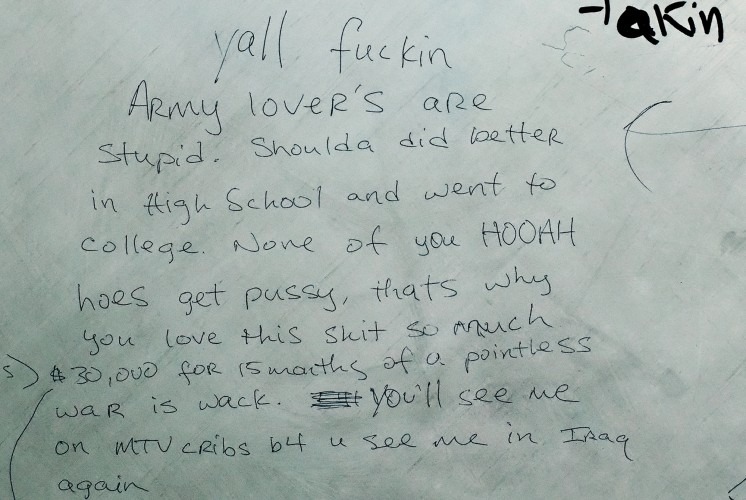 takin
yall fuckin
ARMY loveR'S aRe
Stupid. Shoulda did betteR
in High School and went to
college. None of you HOOAH
hoes get pussy, thats why
you love this shit so much
s) $30,000 foR 15 months of a pointless
waR is wack. You'll see me
on MTV cRibs b4 u see me in IRaq
again